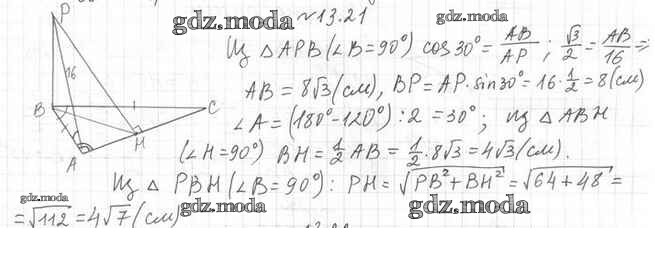 №13.21
gdz.moda gdz.moda
P
16
B
C
H
A
Из △ APB (∠B=90°) cos 30° = AB/AP ; √3/2 = AB/16 ⇒
AB = 8√3 (см), BP = AP·sin30° = 16·1/2 = 8 (см)
∠A = (180°-120°) : 2 = 30° ; из △ ABH
(∠H=90°) BH = 1/2 AB = 1/2 · 8√3 = 4√3 (см).
Из △ PBH (∠B=90°) : PH = √PB²+BH² = √64+48 =
gdz.moda
= √112 = 4√7 (см)
gdz.moda gdz.moda